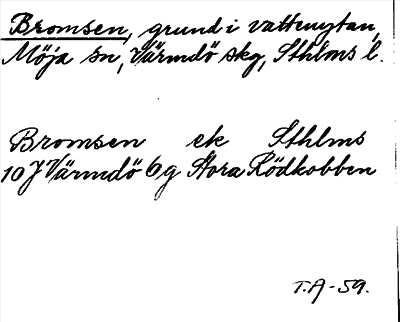 Bromsen, grund i vattenytan,
Möja sn, Värmdö skg, Sthlms l.
Bromsen ek Sthlms
10 J Värmdö 6 g Stora Rödkobben
T.A-59.